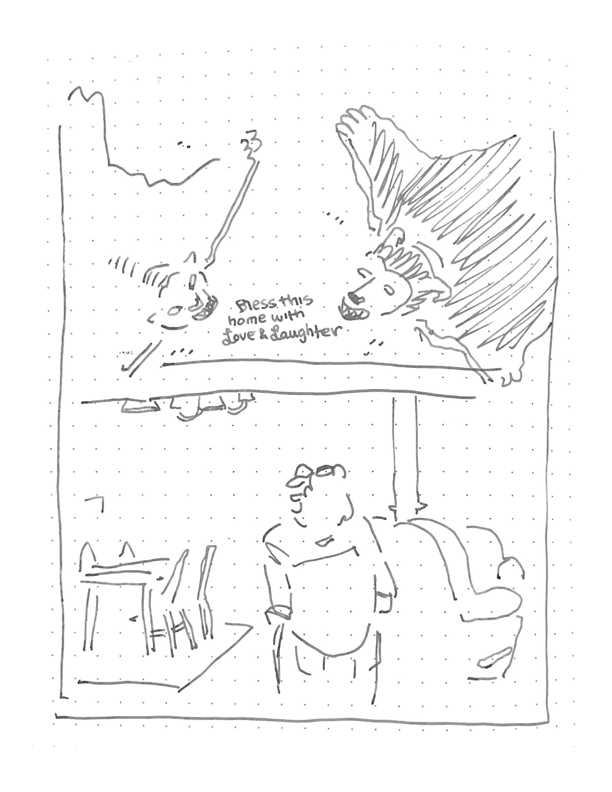 Bless this
home with
Love & Laughter